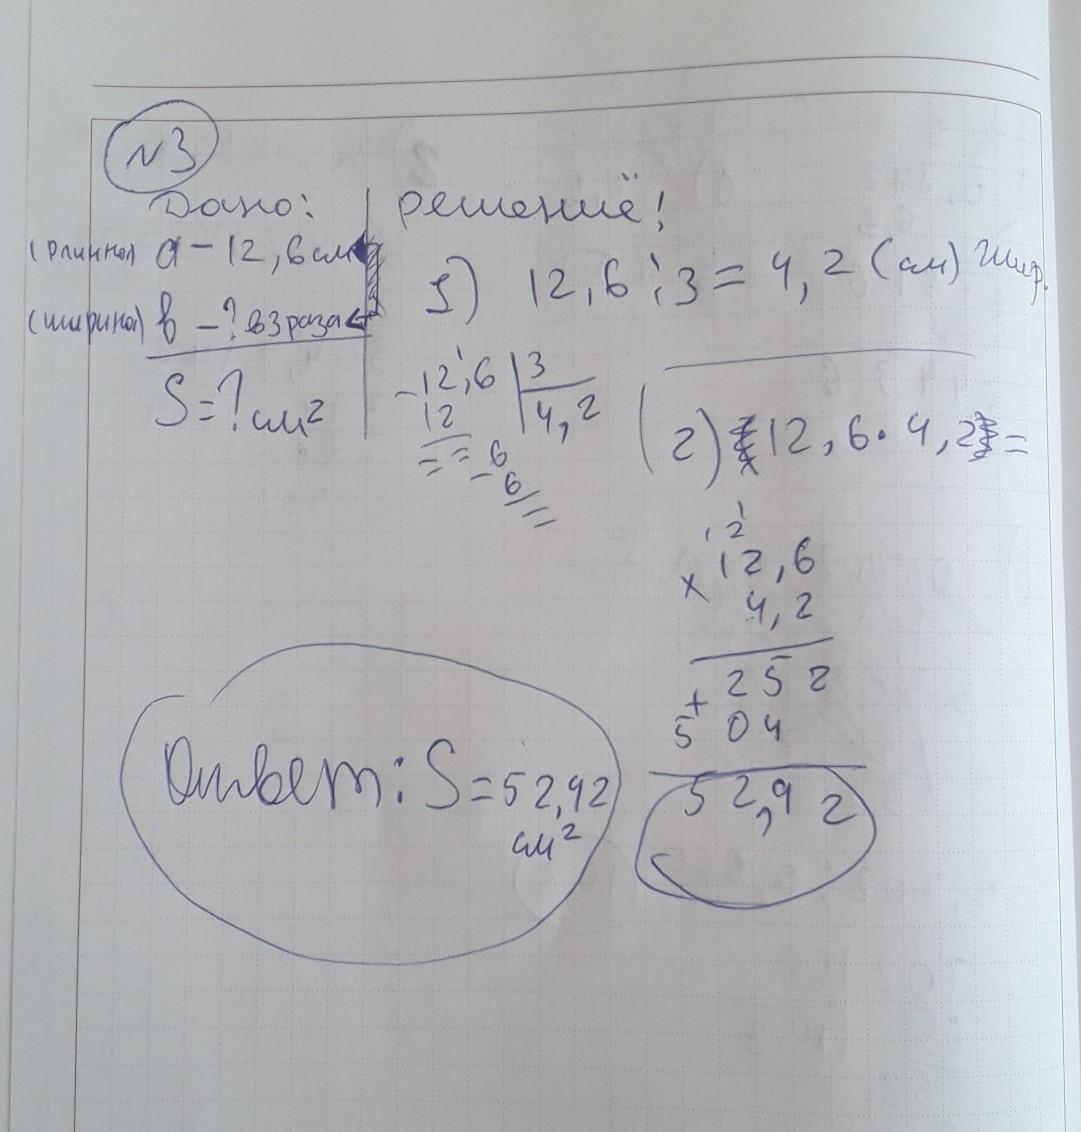 №3
Дано:
(длинна) a - 12,6 см
(ширина) в - ? в 3 раза
S = ? см²
решение!
1) 12,6 : 3 = 4,2 (см) шир.
12,6 | 3
- 12 | 4,2
6
- 6
2) 12,6 · 4,2 =
1 2 1
× 12,6
4,2
252
+ 504
52,92
Ответ: S = 52,92
см²